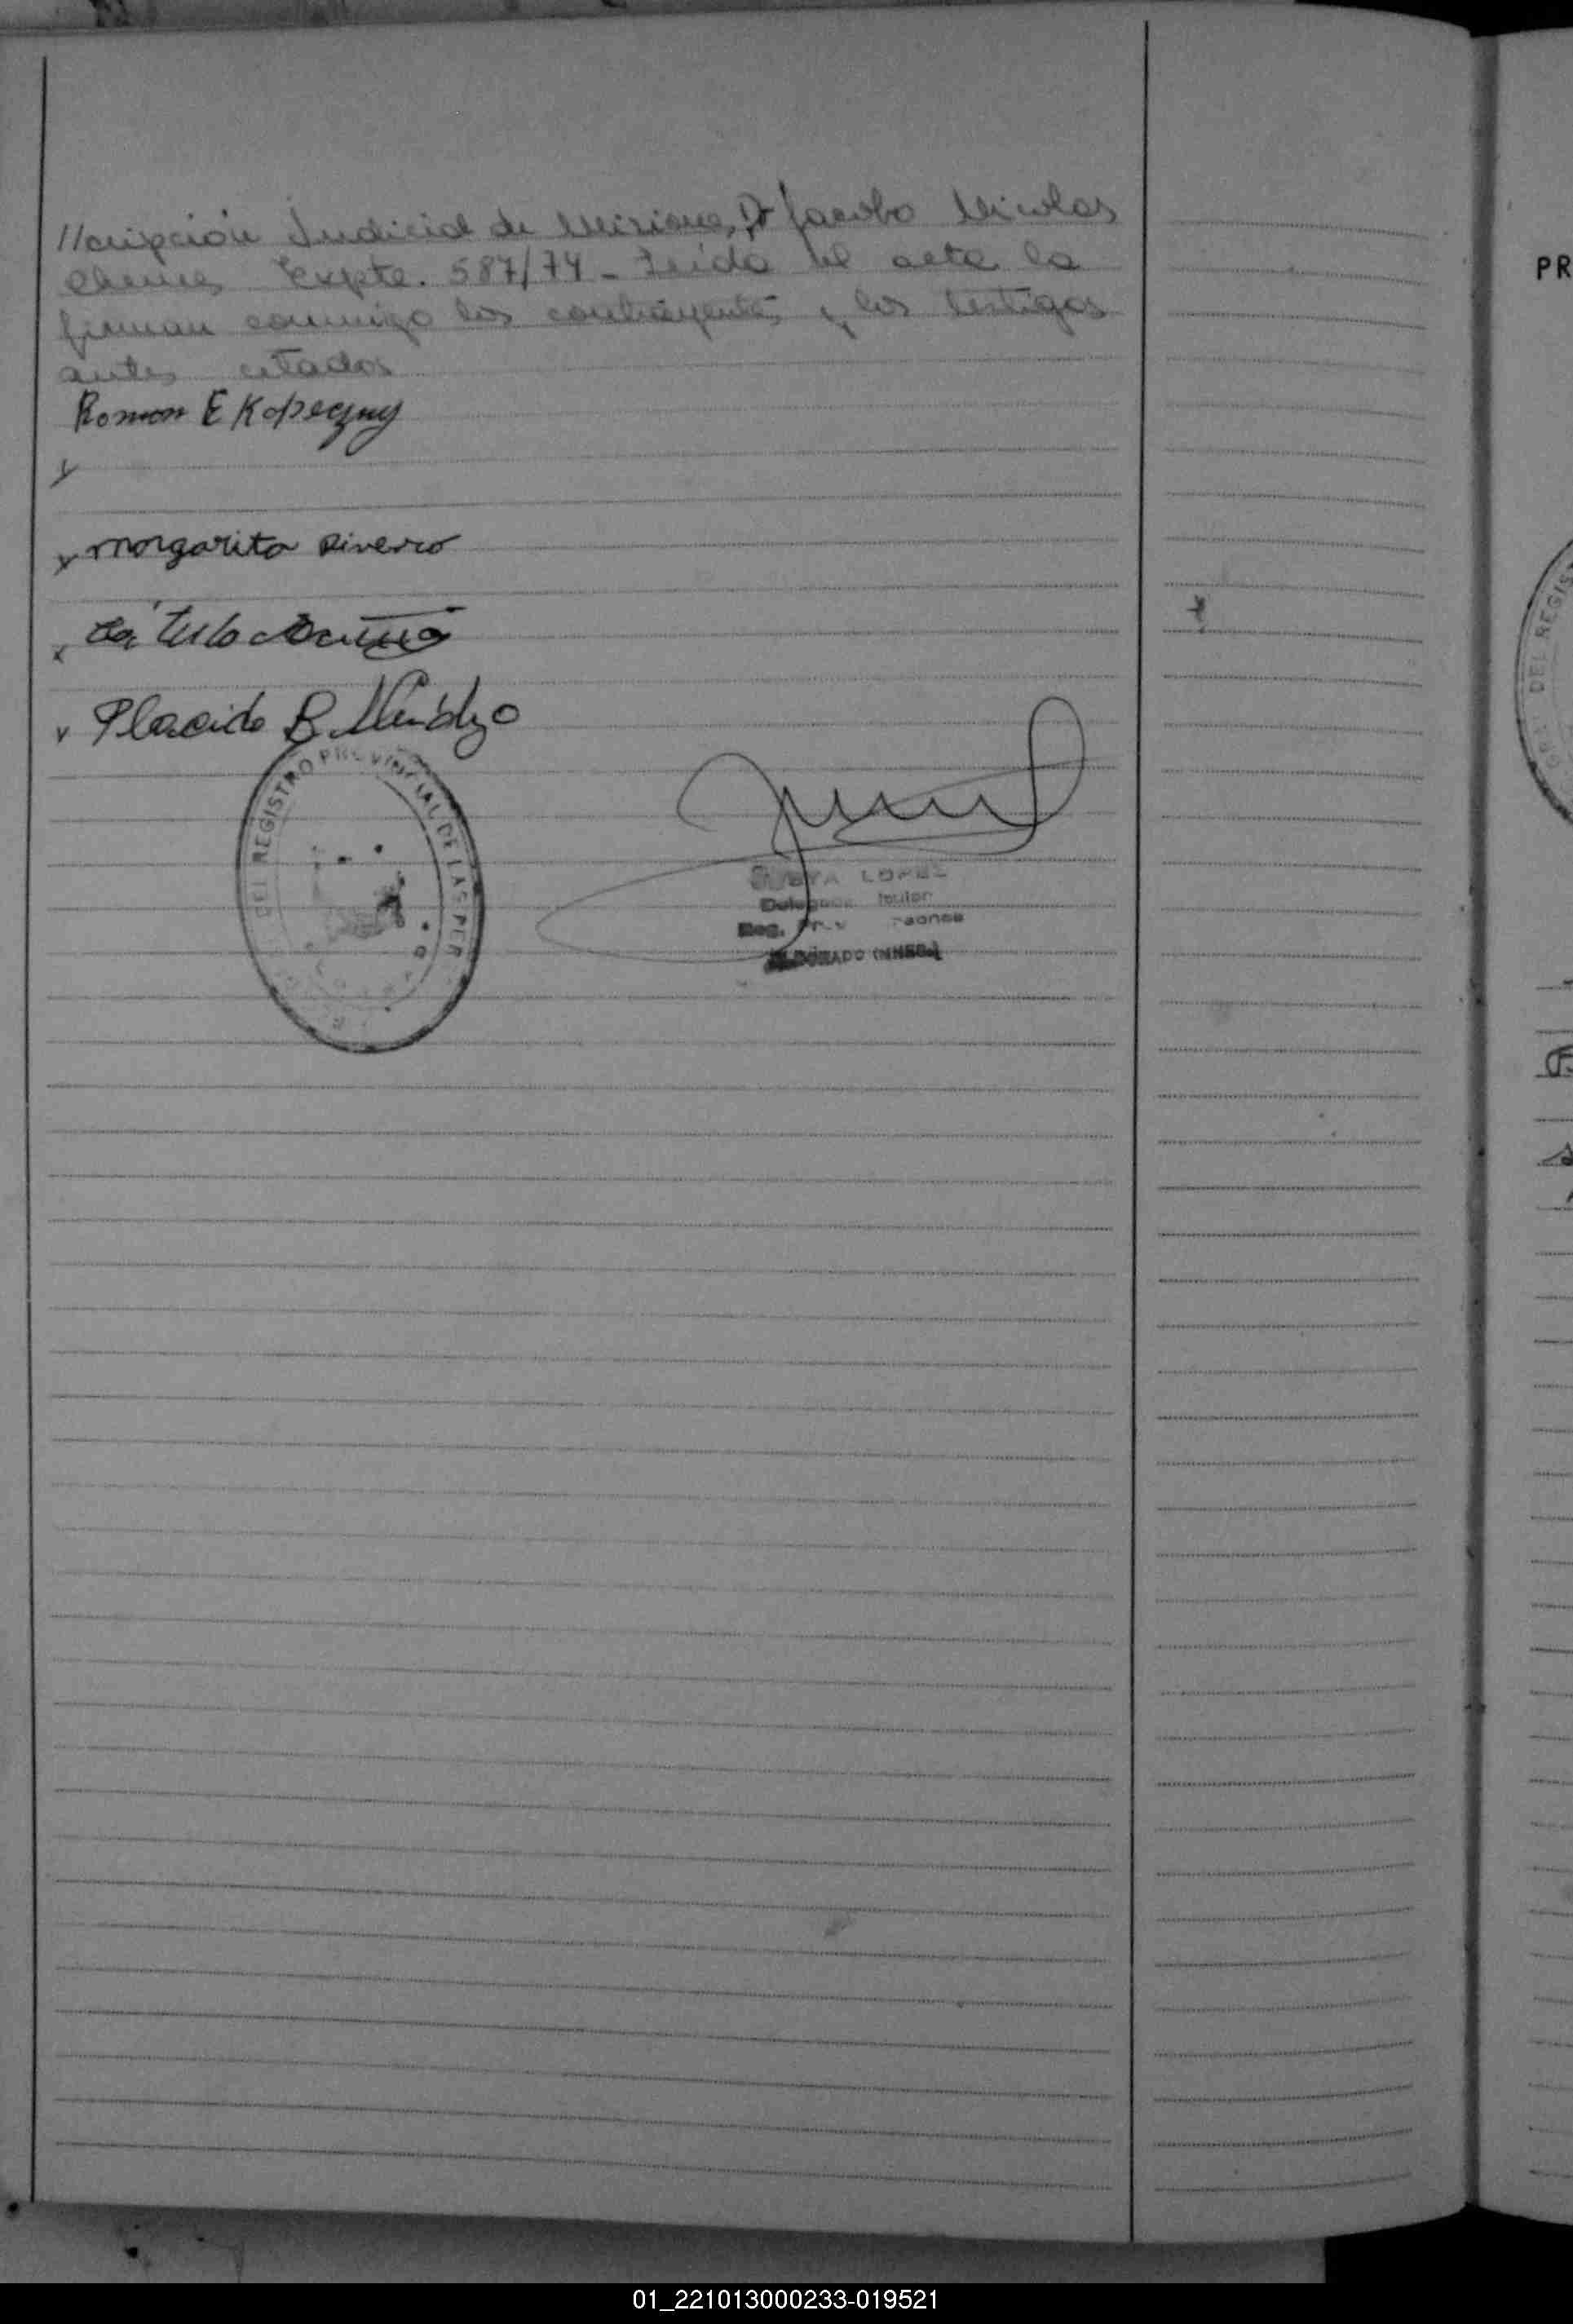 //cripción Judicial de Misiones, Dr Jacobo Nicolas
Expte. 587/74 - Leida el acta la
firman conmigo los contrayentes y los testigos
antes citados
Roman E Kopeczny
x
x margarita Riverro
x
v Placido B.
DEL REGISTRO PROVINCIAL DE LAS PER
LOPEZ
Reg.
ELDORADO (MNES.)
PR
DEL REGIS
01_221013000233-019521